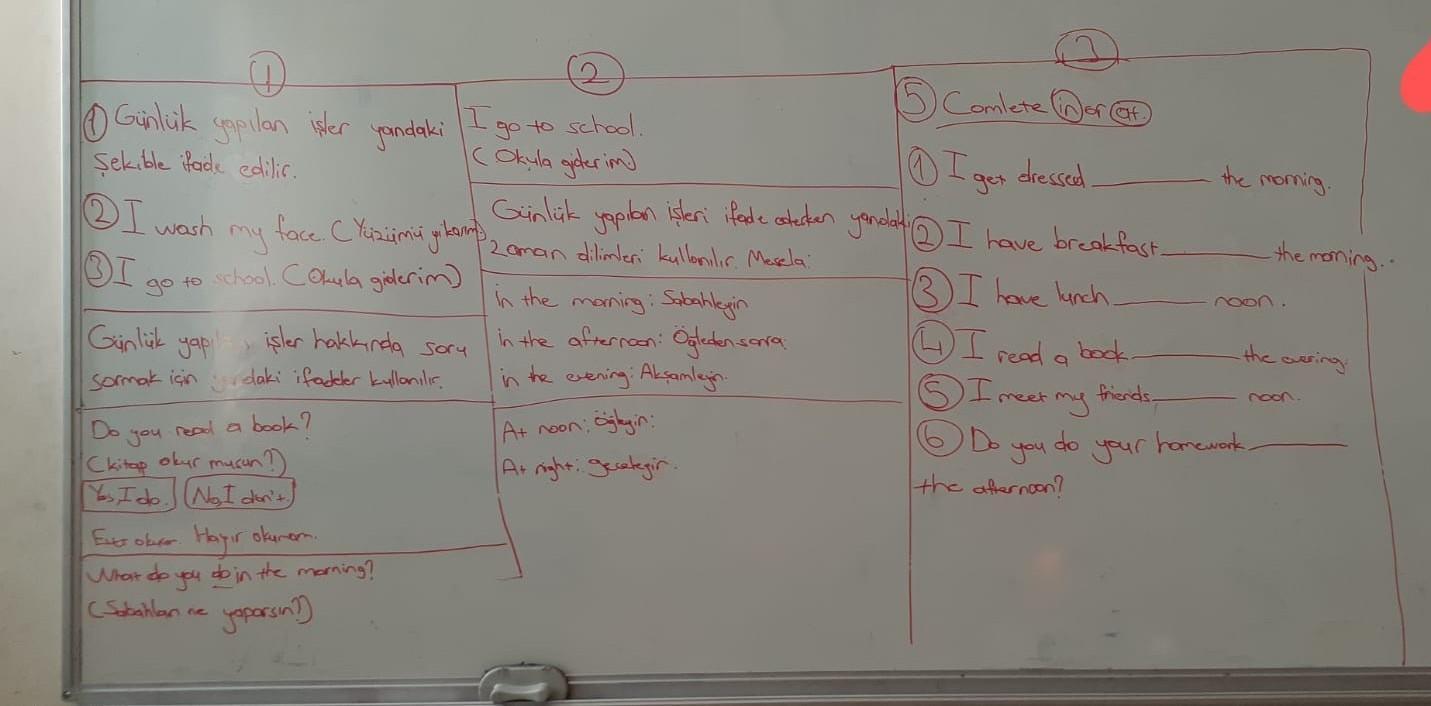 1
① Günlük yapılan işler yandaki
şekilble ifade edilir.
② I wash my face. (Yüzümü yıkarım)
③ I go to school. (Okula giderim)
Günlük yapılan işler hakkında soru
sormak için yandaki ifadeler kullanılır.
Do you read a book?
(kitap okur musun?)
Yes, I do. No, I don't.
Evet okur. Hayır okumam.
What do you do in the morning?
(Sabahları ne yaparsın?)
2
I go to school.
(Okula giderim)
Günlük yapılan işleri ifade ederken yandaki
zaman dilimleri kullanılır. Mesela:
in the morning: Sabahleyin
in the afternoon: Öğleden sonra.
in the evening: Akşamleyin.
At noon: Öğleyin:
At night: geceleyin.
3
⑤ Comlete in or at.
① I get dressed ______ the morning.
② I have breakfast ______ the morning..
③ I have lunch ______ noon.
④ I read a book ______ the evening.
⑤ I meet my friends ______ noon.
⑥ Do you do your homework ______
the afternoon?